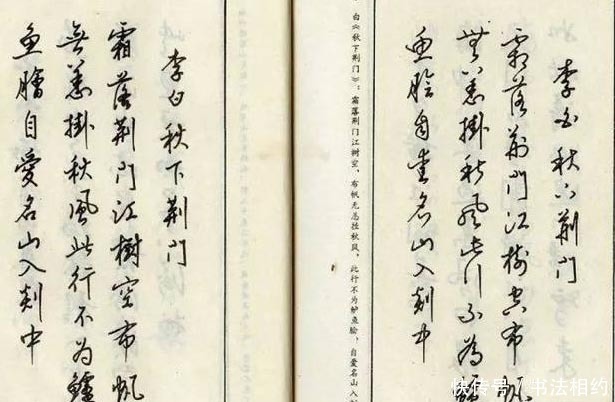 李白秋下荆门
霜落荆门江樹空布帆
無恙掛秋风此行不为鱸
鱼膾自爱名山入剡中
白《秋下荆门》：霜落荆门江树空，布帆无恙挂秋风。此行不为鲈鱼鲙，自爱名山入剡
李白秋下荆门
霜落荆门江樹空布帆
無恙掛秋風此行不为鱸
鱼膾自愛名山入剡中
快传号/书法相约